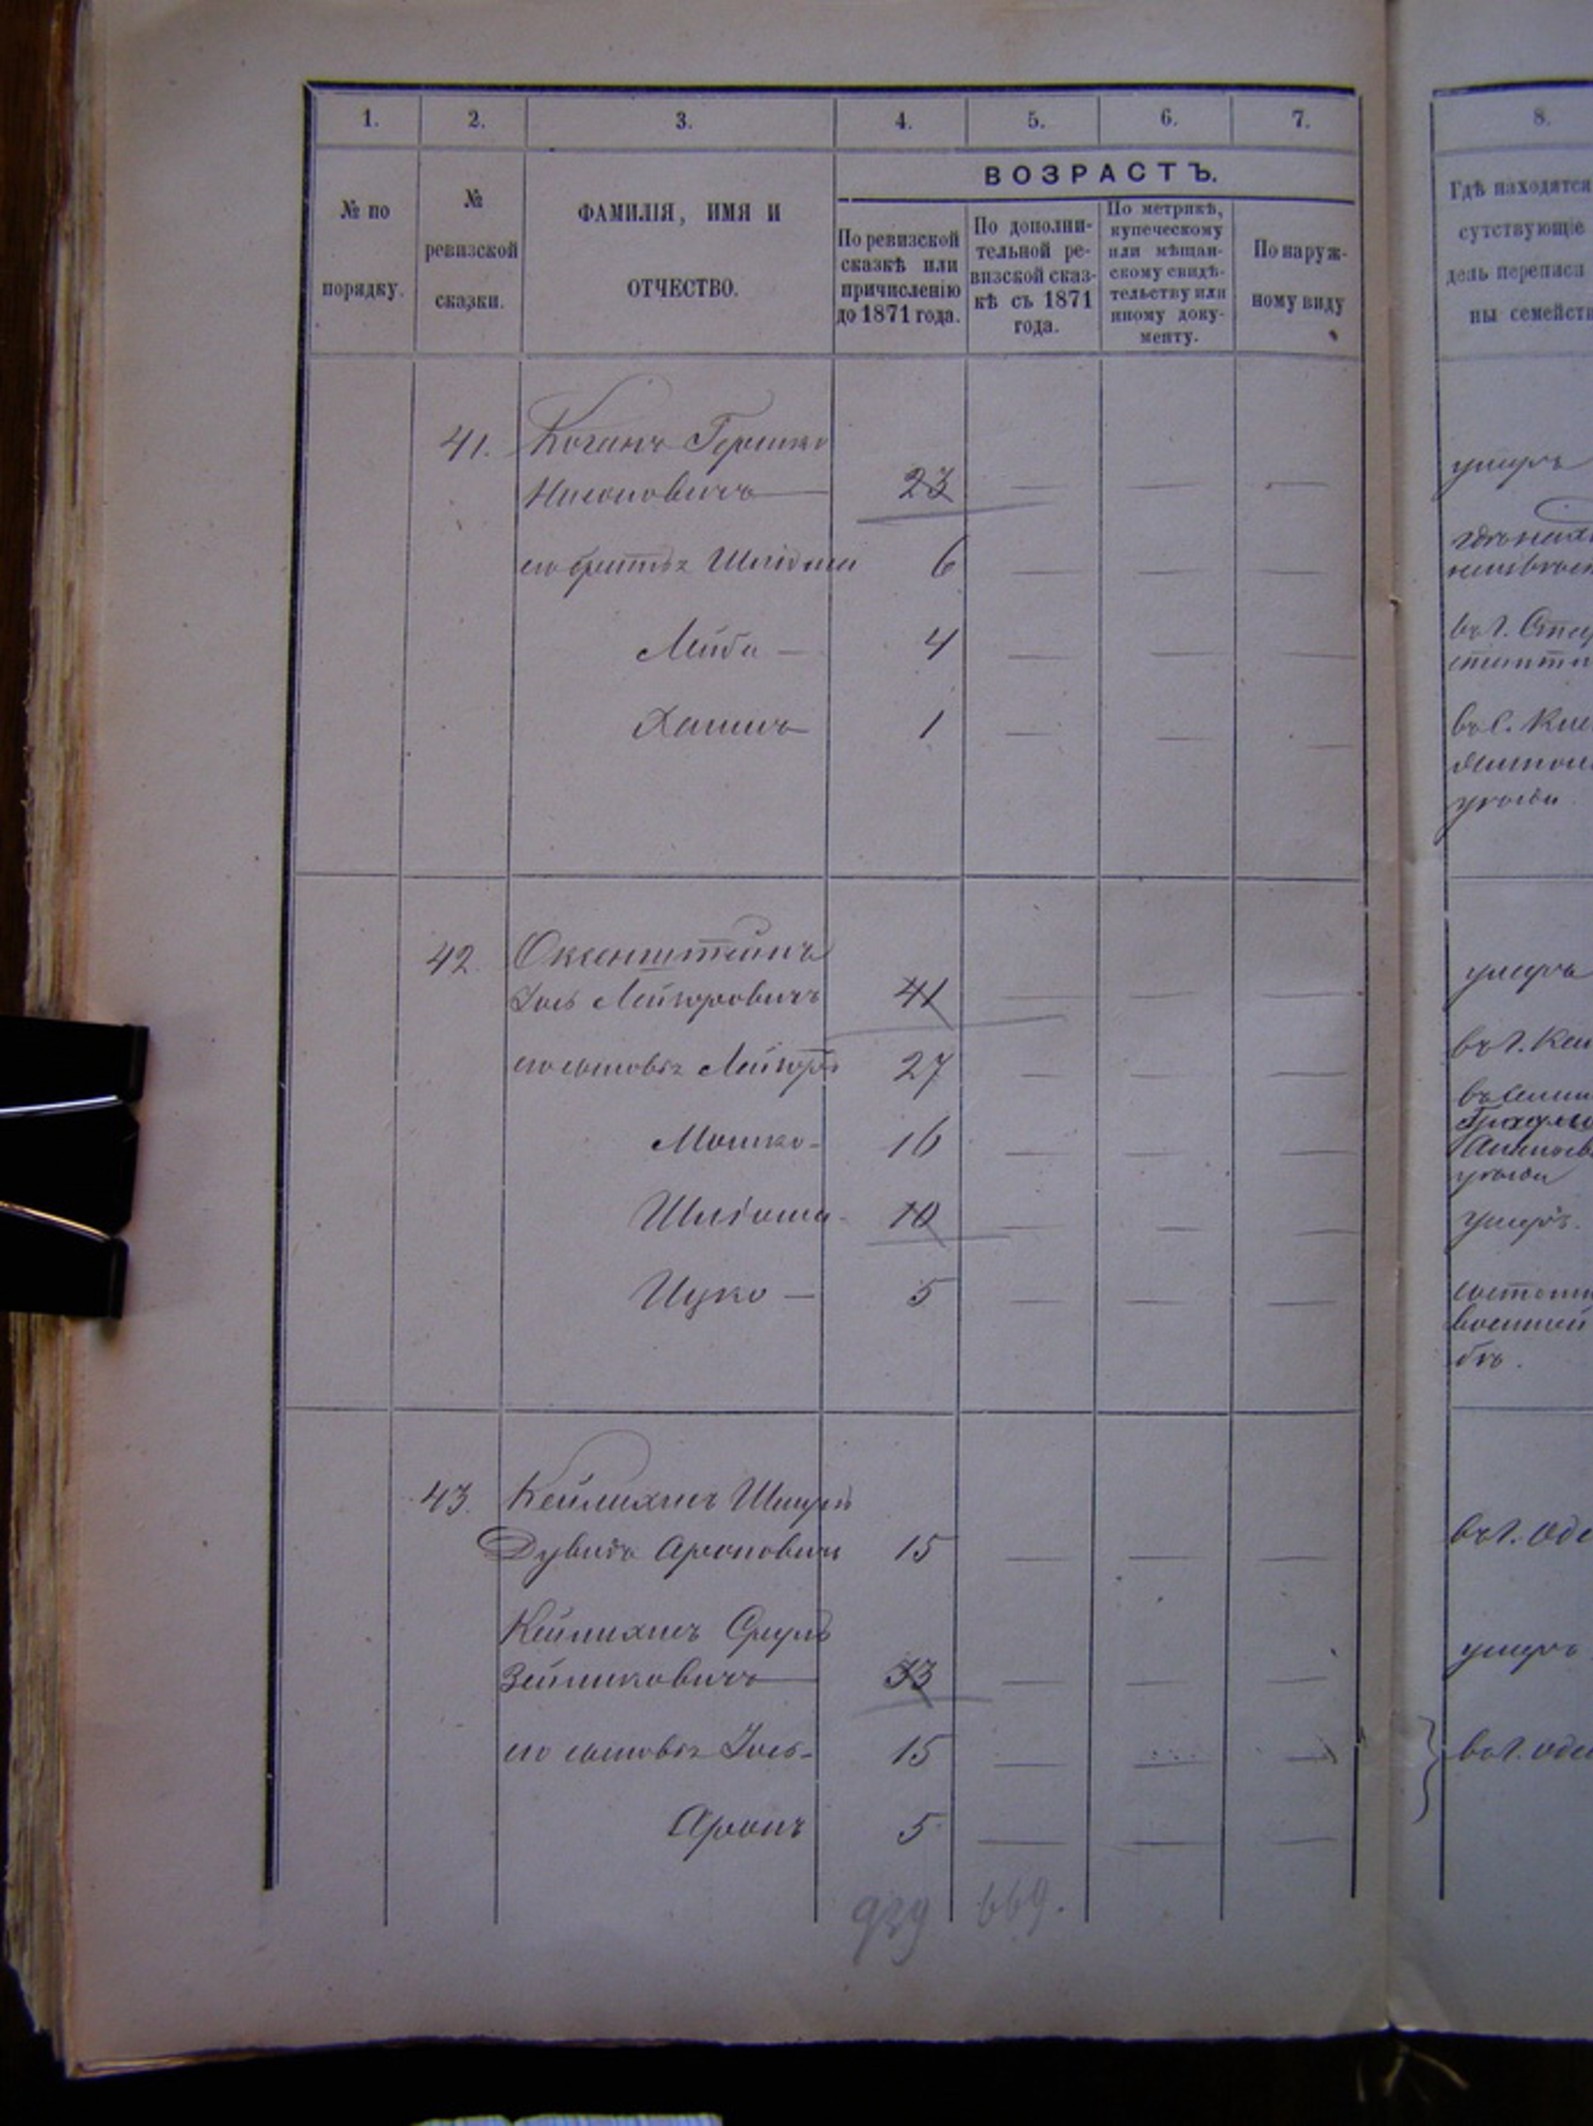 1. 2. 3. 4. 5. 6. 7. 8.
№ по порядку.
№ ревизской сказки.
ФАМИЛІЯ, ИМЯ И ОТЧЕСТВО.
ВОЗРАСТЪ.
По ревизской сказкѣ или причисленію до 1871 года.
По дополни-
тельной ре-
визской сказ-
кѣ съ 1871
года.
По метрикѣ,
купеческому
или мѣщан-
скому свидѣ-
тельству или
иному доку-
менту.
По наруж-
ному виду
Гдѣ находятся
сутствующіе
день переписи
ны семейств
41. Коганъ Гершко
Нисоновичъ 23 — — — умеръ
его братья Шлiома 6 — — —
Лейба — 4 — — — въ г.
Хаимъ 1 — — —
уѣзда
42. Оксенштейнъ
Іось Лейзоровичъ 41 — — — умеръ
его сыновья Лейзоръ 27 — — — въ г.
Мошко - 16 — — —
уѣзда
Шлiома - 10 — — — умеръ.
Ицко — 5 — — —
военной
бѣ.
43. Кейлихисъ Шмуль
Дувидъ Ароновичъ 15 — — — въ г. Оде
Кейлихисъ Сруль
Зейликовичъ 33 — — — умеръ
его сыновья Іось - 15 — — — въ г. Оде
Аронъ 5 — — —
929 669.